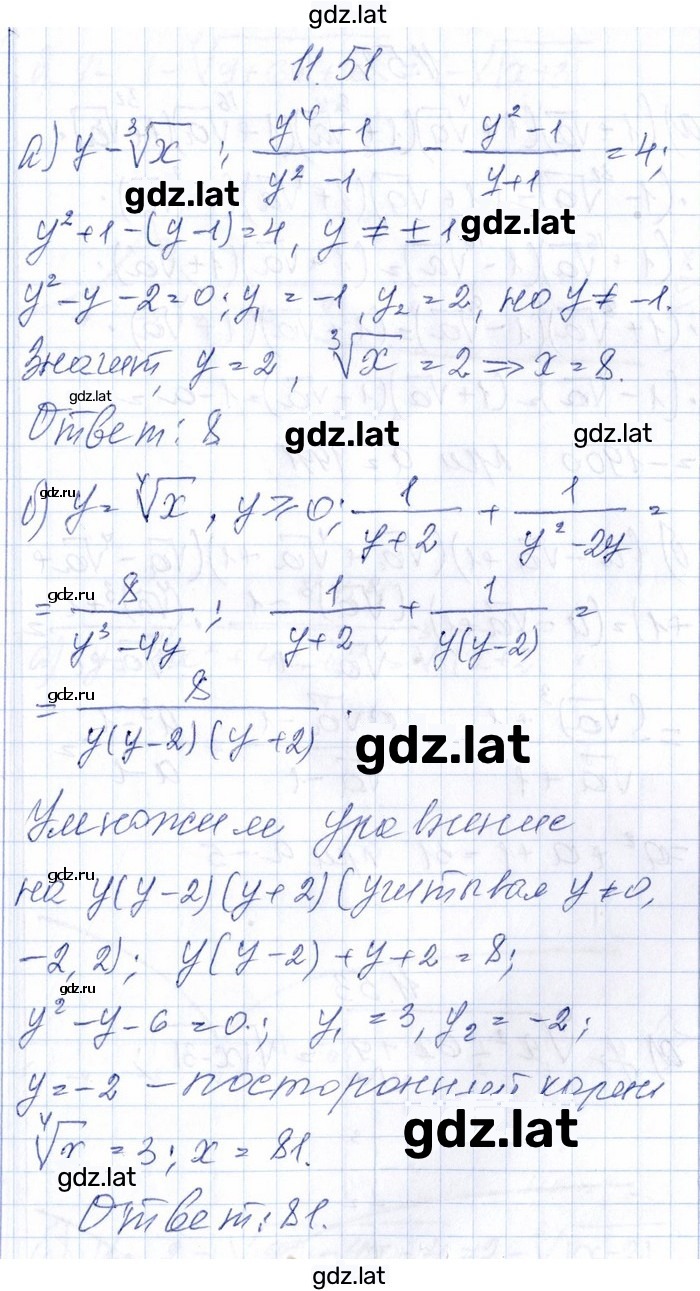 gdz.lat
11.51
а) y - ∛x ; (y⁴ - 1)/(y² - 1) - (y² - 1)/(y + 1) = 4;
gdz.lat
y² + 1 - (y - 1) = 4, y ≠ ± 1
gdz.lat
y² - y - 2 = 0; y₁ = -1, y₂ = 2, но y ≠ -1.
Значит, y = 2, ∛x = 2 => x = 8.
gdz.lat
Ответ: 8
gdz.lat
gdz.lat
gdz.ru
б) y = ∜x, y ⩾ 0; 1/(y + 2) + 1/(y² - 2y) =
gdz.ru
= 8/(y³ - 4y); 1/(y + 2) + 1/(y(y - 2)) =
gdz.ru
= 8/(y(y - 2)(y + 2)).
gdz.lat
Умножим уравнение
gdz.ru
на y(y - 2)(y + 2) (учитывая y ≠ 0,
-2, 2); y(y - 2) + y + 2 = 8;
gdz.ru
y² - y - 6 = 0; y₁ = 3, y₂ = -2;
y = -2 - посторонний корень
gdz.lat
∜x = 3; x = 81.
gdz.lat
Ответ: 81.
gdz.lat